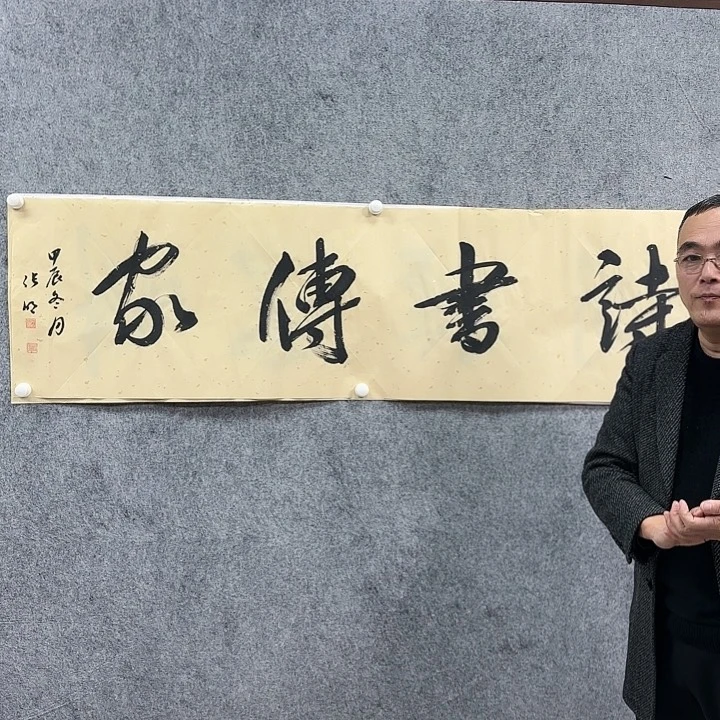 詩書傳家
甲辰冬月
張明